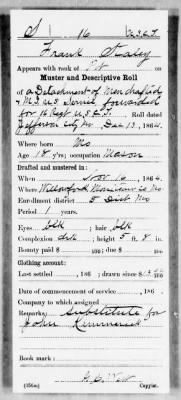 S 16 U.S.C.T.
Frank Staley
Appears with rank of Pvt on
Muster and Descriptive Roll
of a Detachment of Men drafted
& M.I. U.S. Service forwarded
for 16 Regt U.S.C.T.
Jefferson City Mo Dec 13, 1864.
Where born Mo
Age 18 y'rs; occupation Mason
Drafted and mustered in:
When Nov 16, 1864.
Where
Enrollment district 5 Dist Mo
Period 1 years.
Eyes blk ; hair blk
Complexion dark ; height 5 ft. 8 in.
Bounty paid $ ; due $
Clothing account:
Last settled , 186 ; drawn since $
Date of commencement of service , 186
Company to which assigned
Remarks: Substitute for
John
Book mark:
(356m) Copyist.